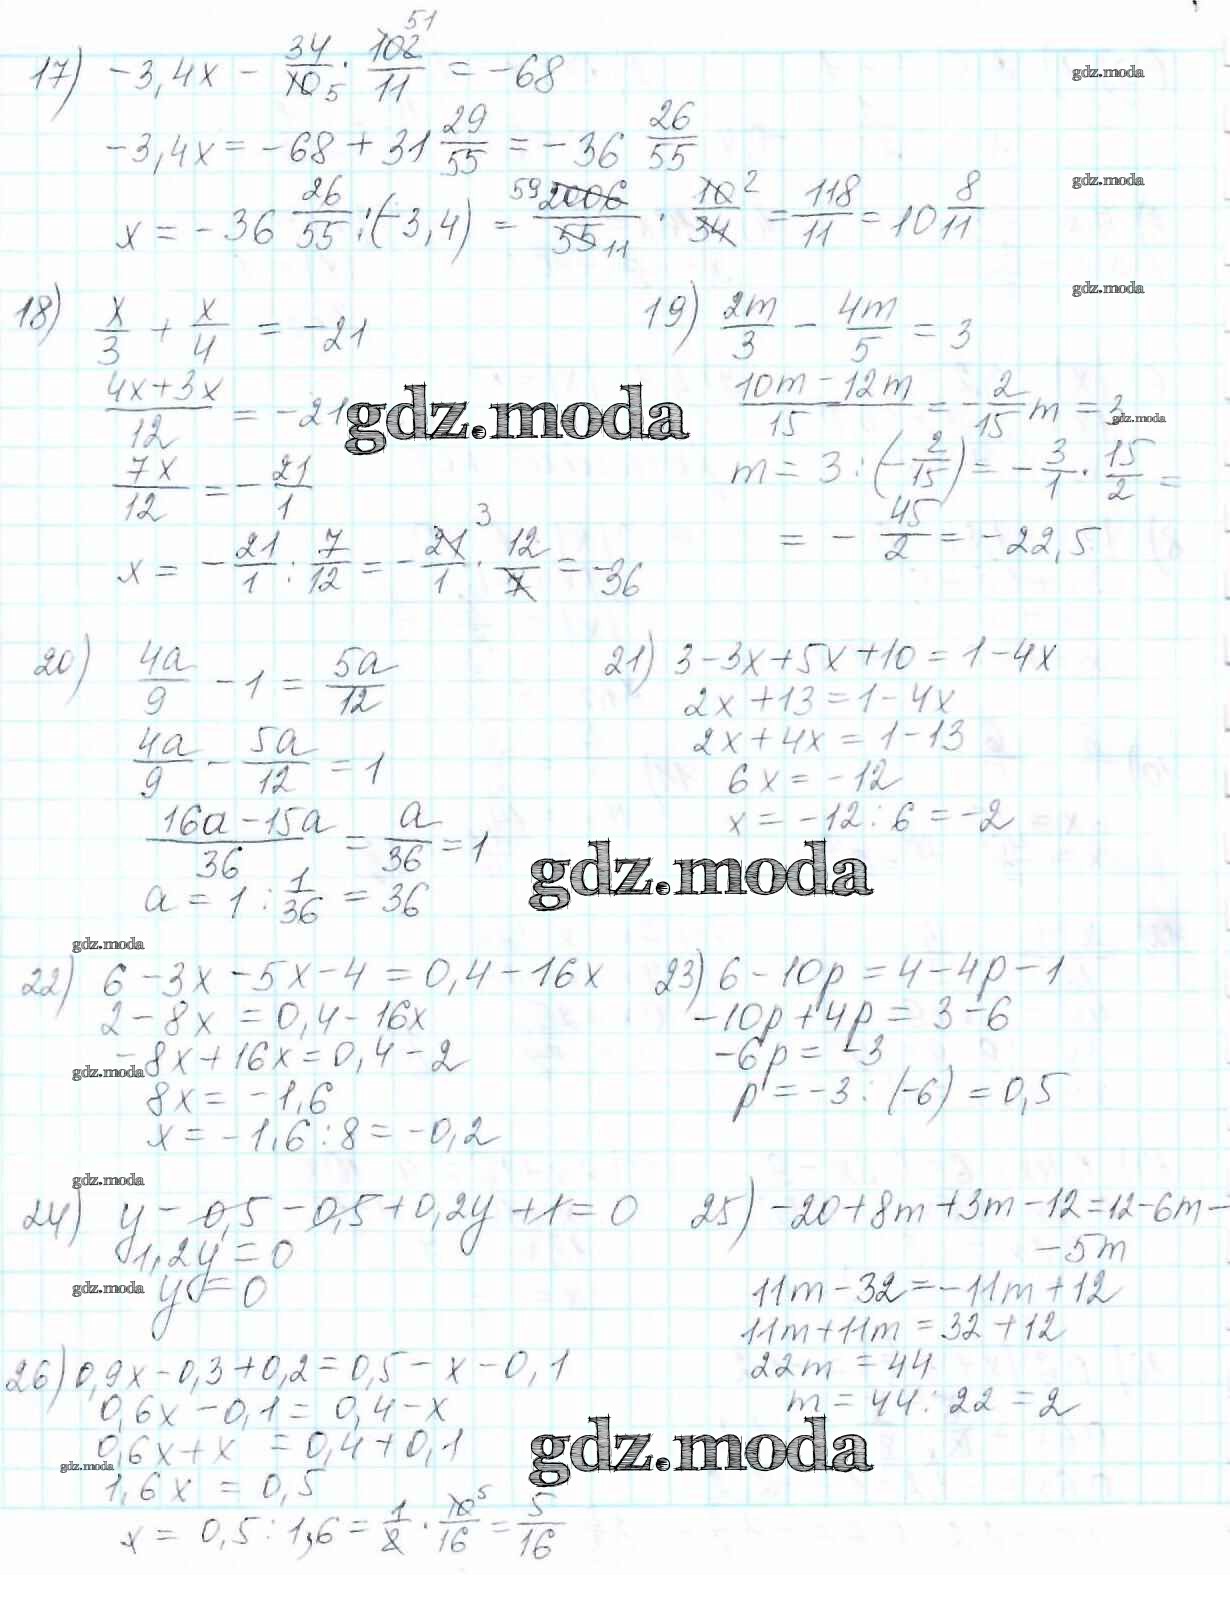 17) -3,4x - 34/10 5 · 102 51/11 = -68
-3,4x = -68 + 31 29/55 = -36 26/55
x = -36 26/55 : (-3,4) = 59 2006/55 11 · 10 2/34 = 118/11 = 10 8/11
18) x/3 + x/4 = -21
(4x+3x)/12 = -21
7x/12 = -21/1
x = -21/1 : 7/12 = -21 3/1 · 12/7 = -36
19) 2m/3 - 4m/5 = 3
(10m-12m)/15 = -2/15 m = 3
m = 3 : (-2/15) = -3/1 · 15/2 =
= -45/2 = -22,5
20) 4a/9 - 1 = 5a/12
4a/9 - 5a/12 = 1
(16a-15a)/36 = a/36 = 1
a = 1 : 1/36 = 36
21) 3-3x+5x+10 = 1-4x
2x+13 = 1-4x
2x+4x = 1-13
6x = -12
x = -12 : 6 = -2
22) 6-3x-5x-4 = 0,4-16x
2-8x = 0,4-16x
-8x+16x = 0,4-2
8x = -1,6
x = -1,6 : 8 = -0,2
23) 6-10p = 4-4p-1
-10p+4p = 3-6
-6p = -3
p = -3 : (-6) = 0,5
24) y - 0,5 - 0,5 + 0,2y + 1 = 0
1,2y = 0
y = 0
25) -20+8m+3m-12 = 12-6m-
-5m
11m-32 = -11m+12
11m+11m = 32+12
22m = 44
m = 44 : 22 = 2
26) 0,9x-0,3+0,2 = 0,5-x-0,1
0,6x-0,1 = 0,4-x
0,6x+x = 0,4+0,1
1,6x = 0,5
x = 0,5 : 1,6 = 1/2 · 10 5/16 = 5/16
gdz.moda
gdz.moda
gdz.moda
gdz.moda
gdz.moda
gdz.moda
gdz.moda
gdz.moda
gdz.moda
gdz.moda
gdz.moda
gdz.moda